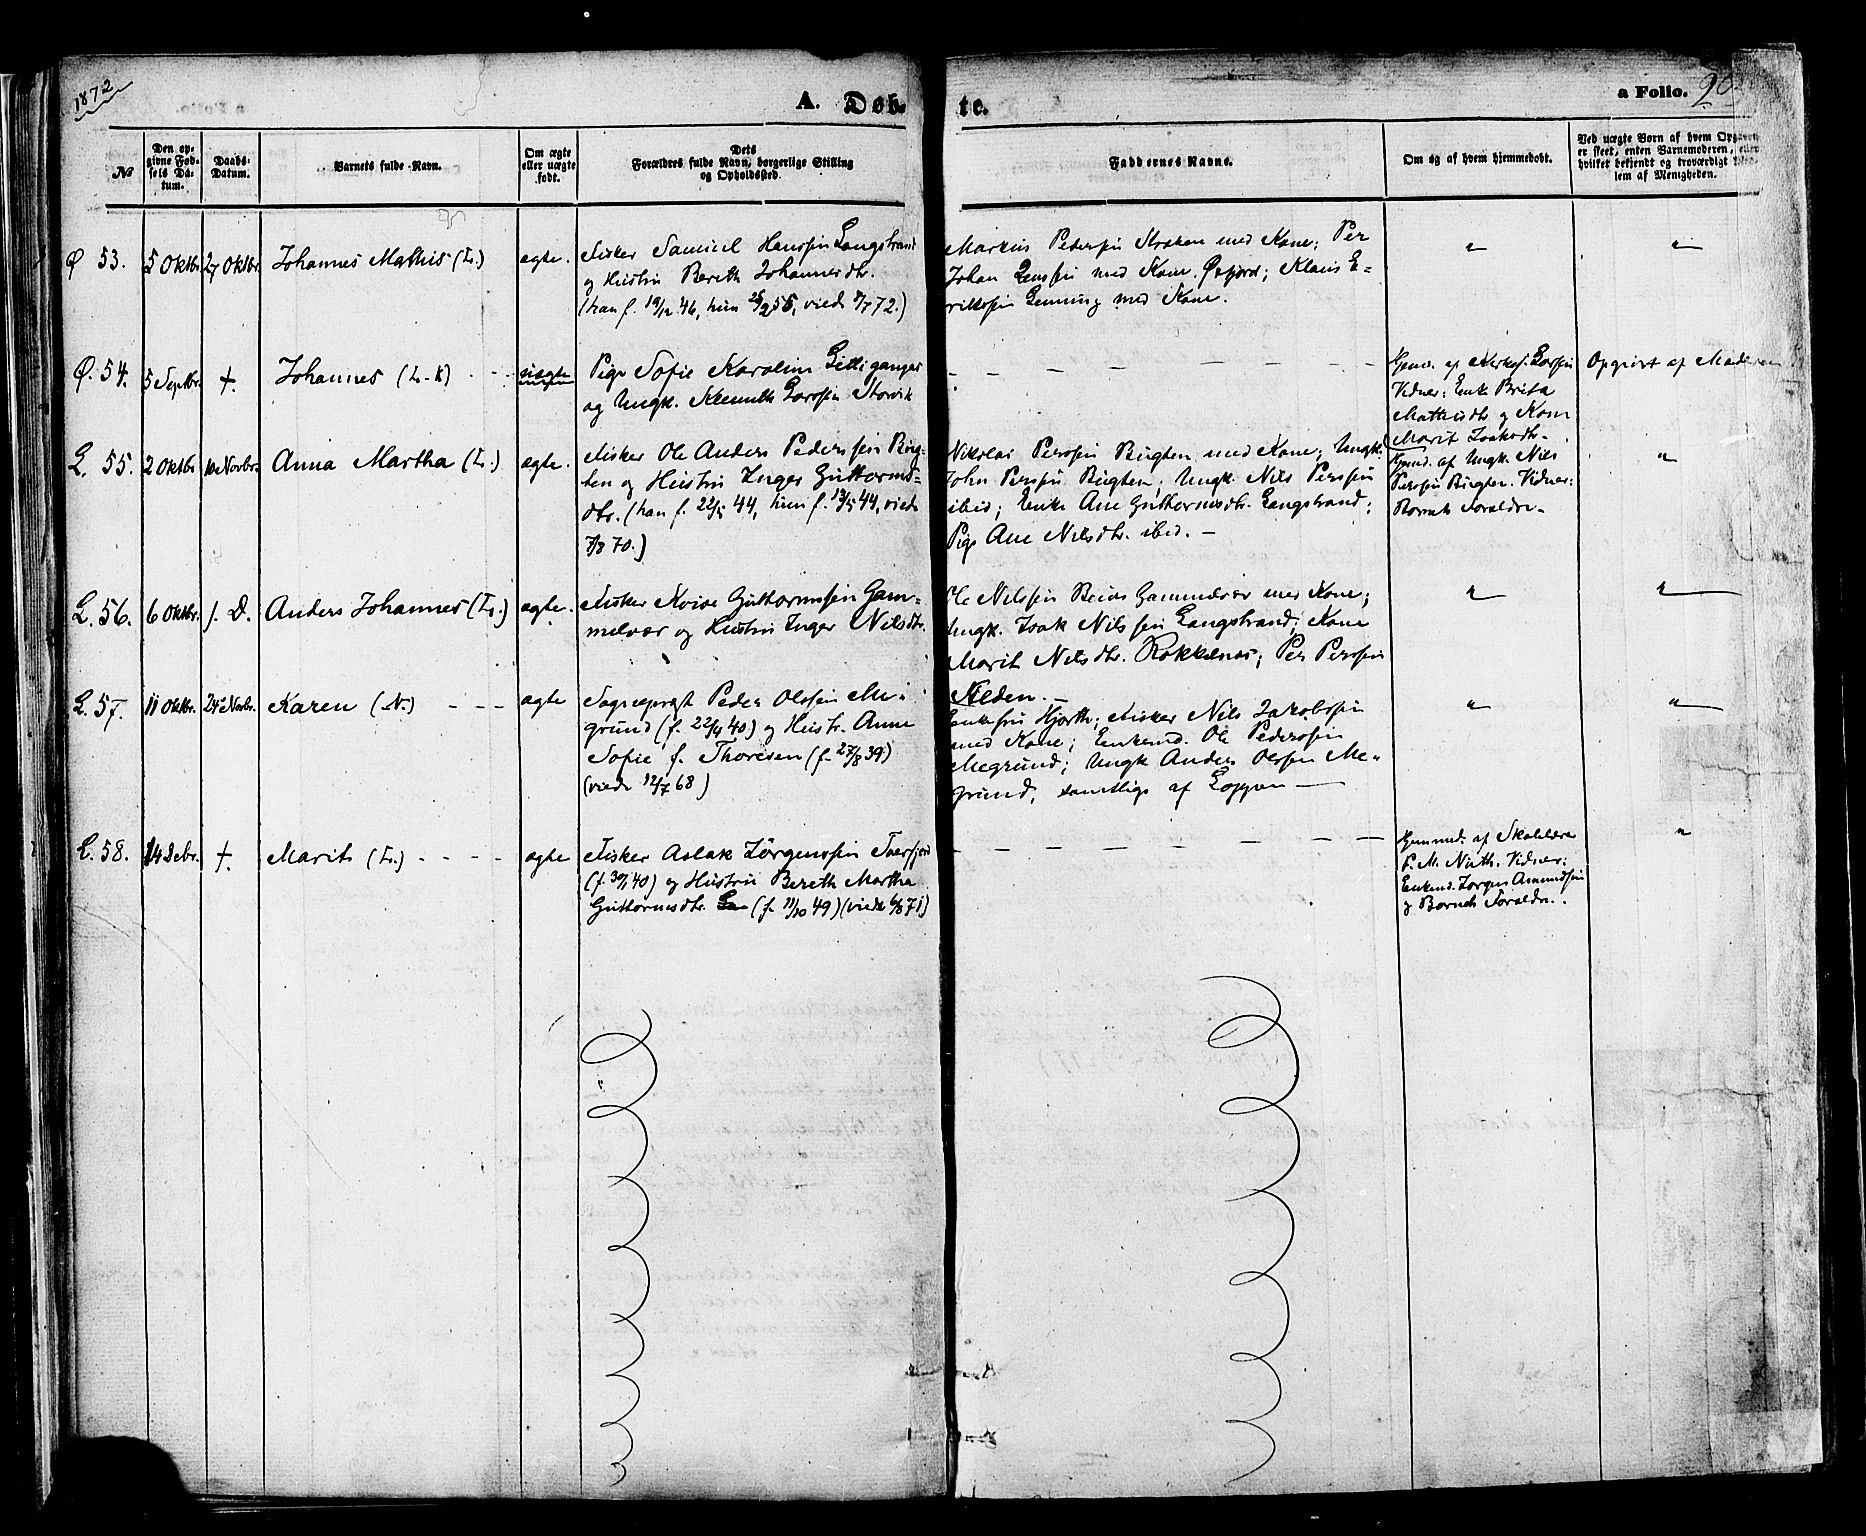 1872
A. Døb-
te.
a Folio. 20
№
Den op-
givne Fød-
sels Da-
tum.
Daabs-
Datum.
Barnets fulde Navn.
Om ægte
eller uægte
født.
Dets
Forældres fulde Navn, borgerlige Stilling
og Opholdssted.
Faddernes Navne.
Om og af hvem hjemmedøbt.
Ved uægte Børn af hvem Opgaven
er skeet, enten Barnemoderen, eller
hvilket bekjendt og troværdigt Med-
lem af Menigheden.
Ø 53.
5 Oktbr.
27 Oktbr.
Johannes Mathis (L.)
ægte.
Fisker Samuel Hanssen Langstrand
og Hustru Bereth Johannesdtr.
(han f. 19/12 46, hun 25/2 55, viede 7/7 72.)
Markus Pederssen Kraken med Kone; Per
Johan Jenssen med Kone. Øxfjord; Klaus E-
rikssen Lenning med Kone.
"
"
Ø. 54.
5 Septbr.
+.
Johannes (L.-K)
uægte
Pige Sofie Karoline
og Ungk. Klemeth Larssen Storvik
Larssen
Vidner: Enke Brita
Mathisdtr. og Kone
Marit Isaksdtr.
Opgivet af Moderen
L. 55.
2 Oktbr
10 Novbr.
Anna Martha (L.)
ægte.
Fisker Ole Anders Pederssen Bug-
ten og Hustru Inger Guttorms-
dtr. (han f. 22/5 44, hun f. 13/5 44, viede
7/8 70.)
Nikolai Perssen Bugten med Kone; Ungk.
John Perssen Bugten; Ungk. Nils Perssen
ibid; Enke Ane Guttormsdtr. Langstrand;
Pige Ane Nilsdtr. ibid. –
Hjmd. af Ungk. Nils
Perssen Bugten. Vidner:
Barnets Forældre.
"
L. 56.
6 Oktbr.
s. D.
Anders Johannes (L.)
ægte.
Fisker Kvive Guttormssen Gam-
melvær og Hustru Inger Nilsdtr.
Ole Nilssen Beivas Gammelvær med Kone;
Ungk. Isak Nilssen Langstrand; Kone
Marit Nilsdtr. Kokkenæs; Per Perssen
Nilden. –
"
"
L. 57.
11 Oktbr.
24 Novbr.
Karen (N.)
ægte
Sogneprest Peder Olssen Me-
grund (f. 22/4 40) og Hustr. Anne
Sofie f. Thoresen (f. 27/8 39)
(viede 12/7 68)
Enkefru Hjorth; Fisker Nils Jakobssen
med Kone; Enkemd. Ole Pederssen
Megrund; Ungk Anders Olssen Me-
grund, samtlige af Loppen
"
"
L. 58.
14 Debr.
+.
Marit (L.)
ægte
Fisker Aslak Jørgenssen Tverfjord
(f. 30/1 40) og Hustru Bereth Martha
Guttormsdtr. (f. 11/10 49) (viede 6/8 71)
Hjemmd. af Skolelærer
P. M. Vidner:
Enkemd. Jørgen Amundssen
og Barnets Forældre.
"